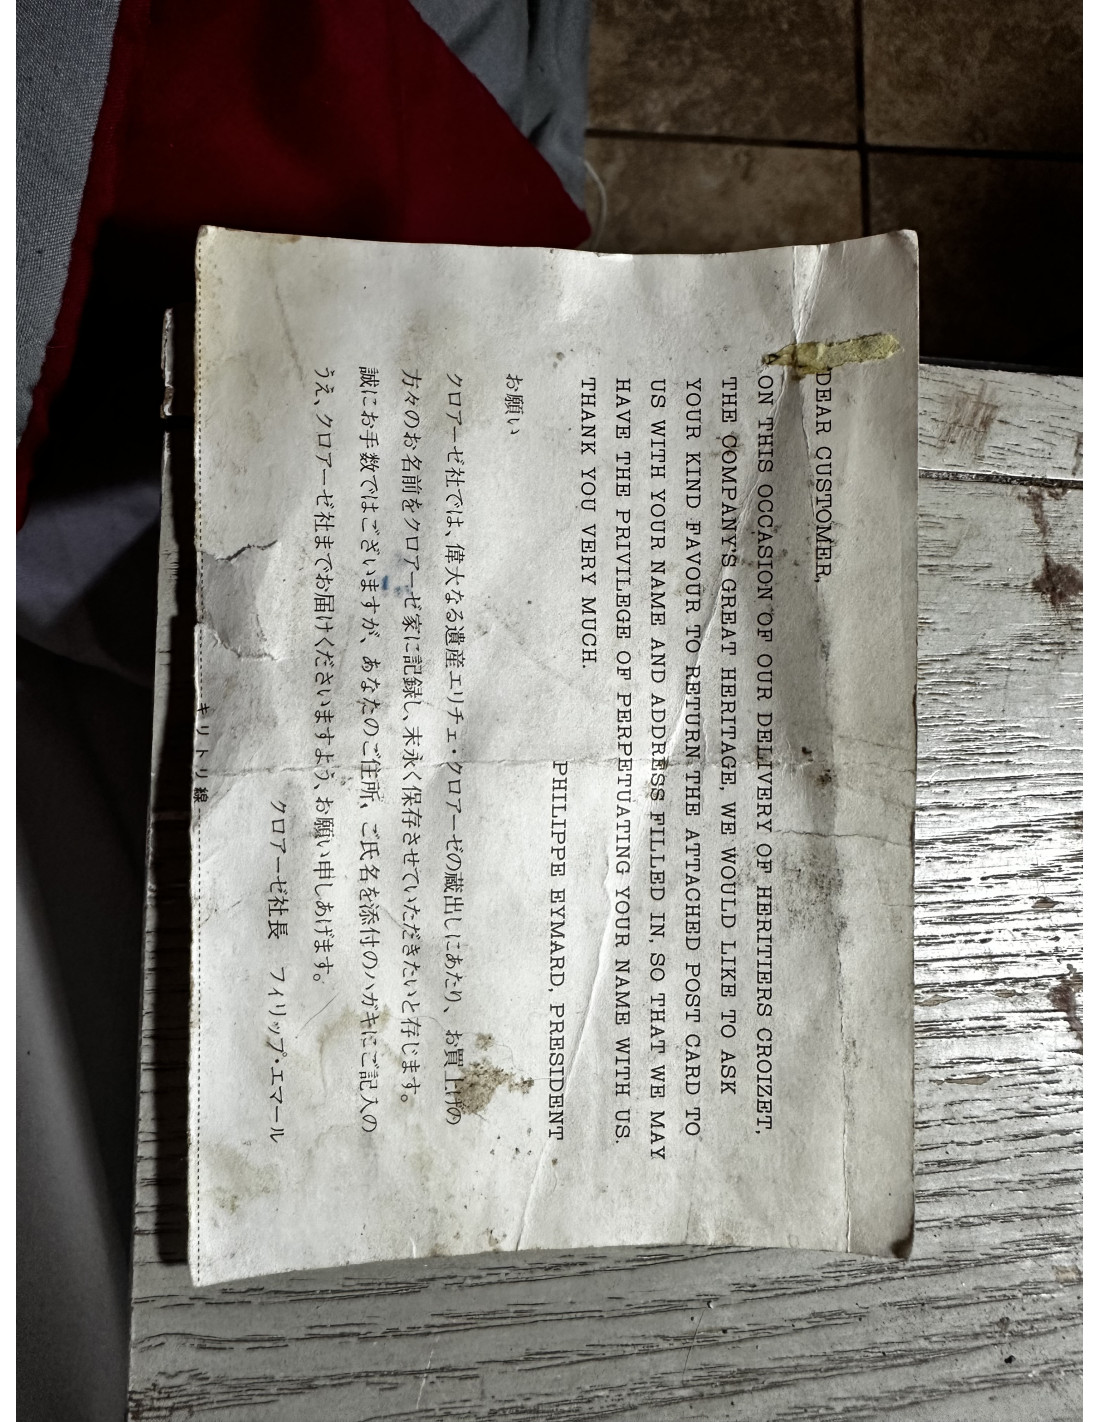 DEAR CUSTOMER,
ON THIS OCCASION OF OUR DELIVERY OF HERITIERS CROIZET,
THE COMPANY'S GREAT HERITAGE, WE WOULD LIKE TO ASK
YOUR KIND FAVOUR TO RETURN THE ATTACHED POST CARD TO
US WITH YOUR NAME AND ADDRESS FILLED IN, SO THAT WE MAY
HAVE THE PRIVILEGE OF PERPETUATING YOUR NAME WITH US.
THANK YOU VERY MUCH.
PHILIPPE EYMARD, PRESIDENT
お願い
クロアーゼ社では、偉大なる遺産エリチェ・クロアーゼの蔵出しにあたり、お買上げの
方々のお名前をクロアーゼ家に記録し、末永く保存させていただきたいと存じます。
誠にお手数ではございますが、あなたのご住所、ご氏名を添付のハガキにご記入の
うえ、クロアーゼ社までお届けくださいますよう、お願い申しあげます。
クロアーゼ社長　フィリップ・エマール
キリトリ線